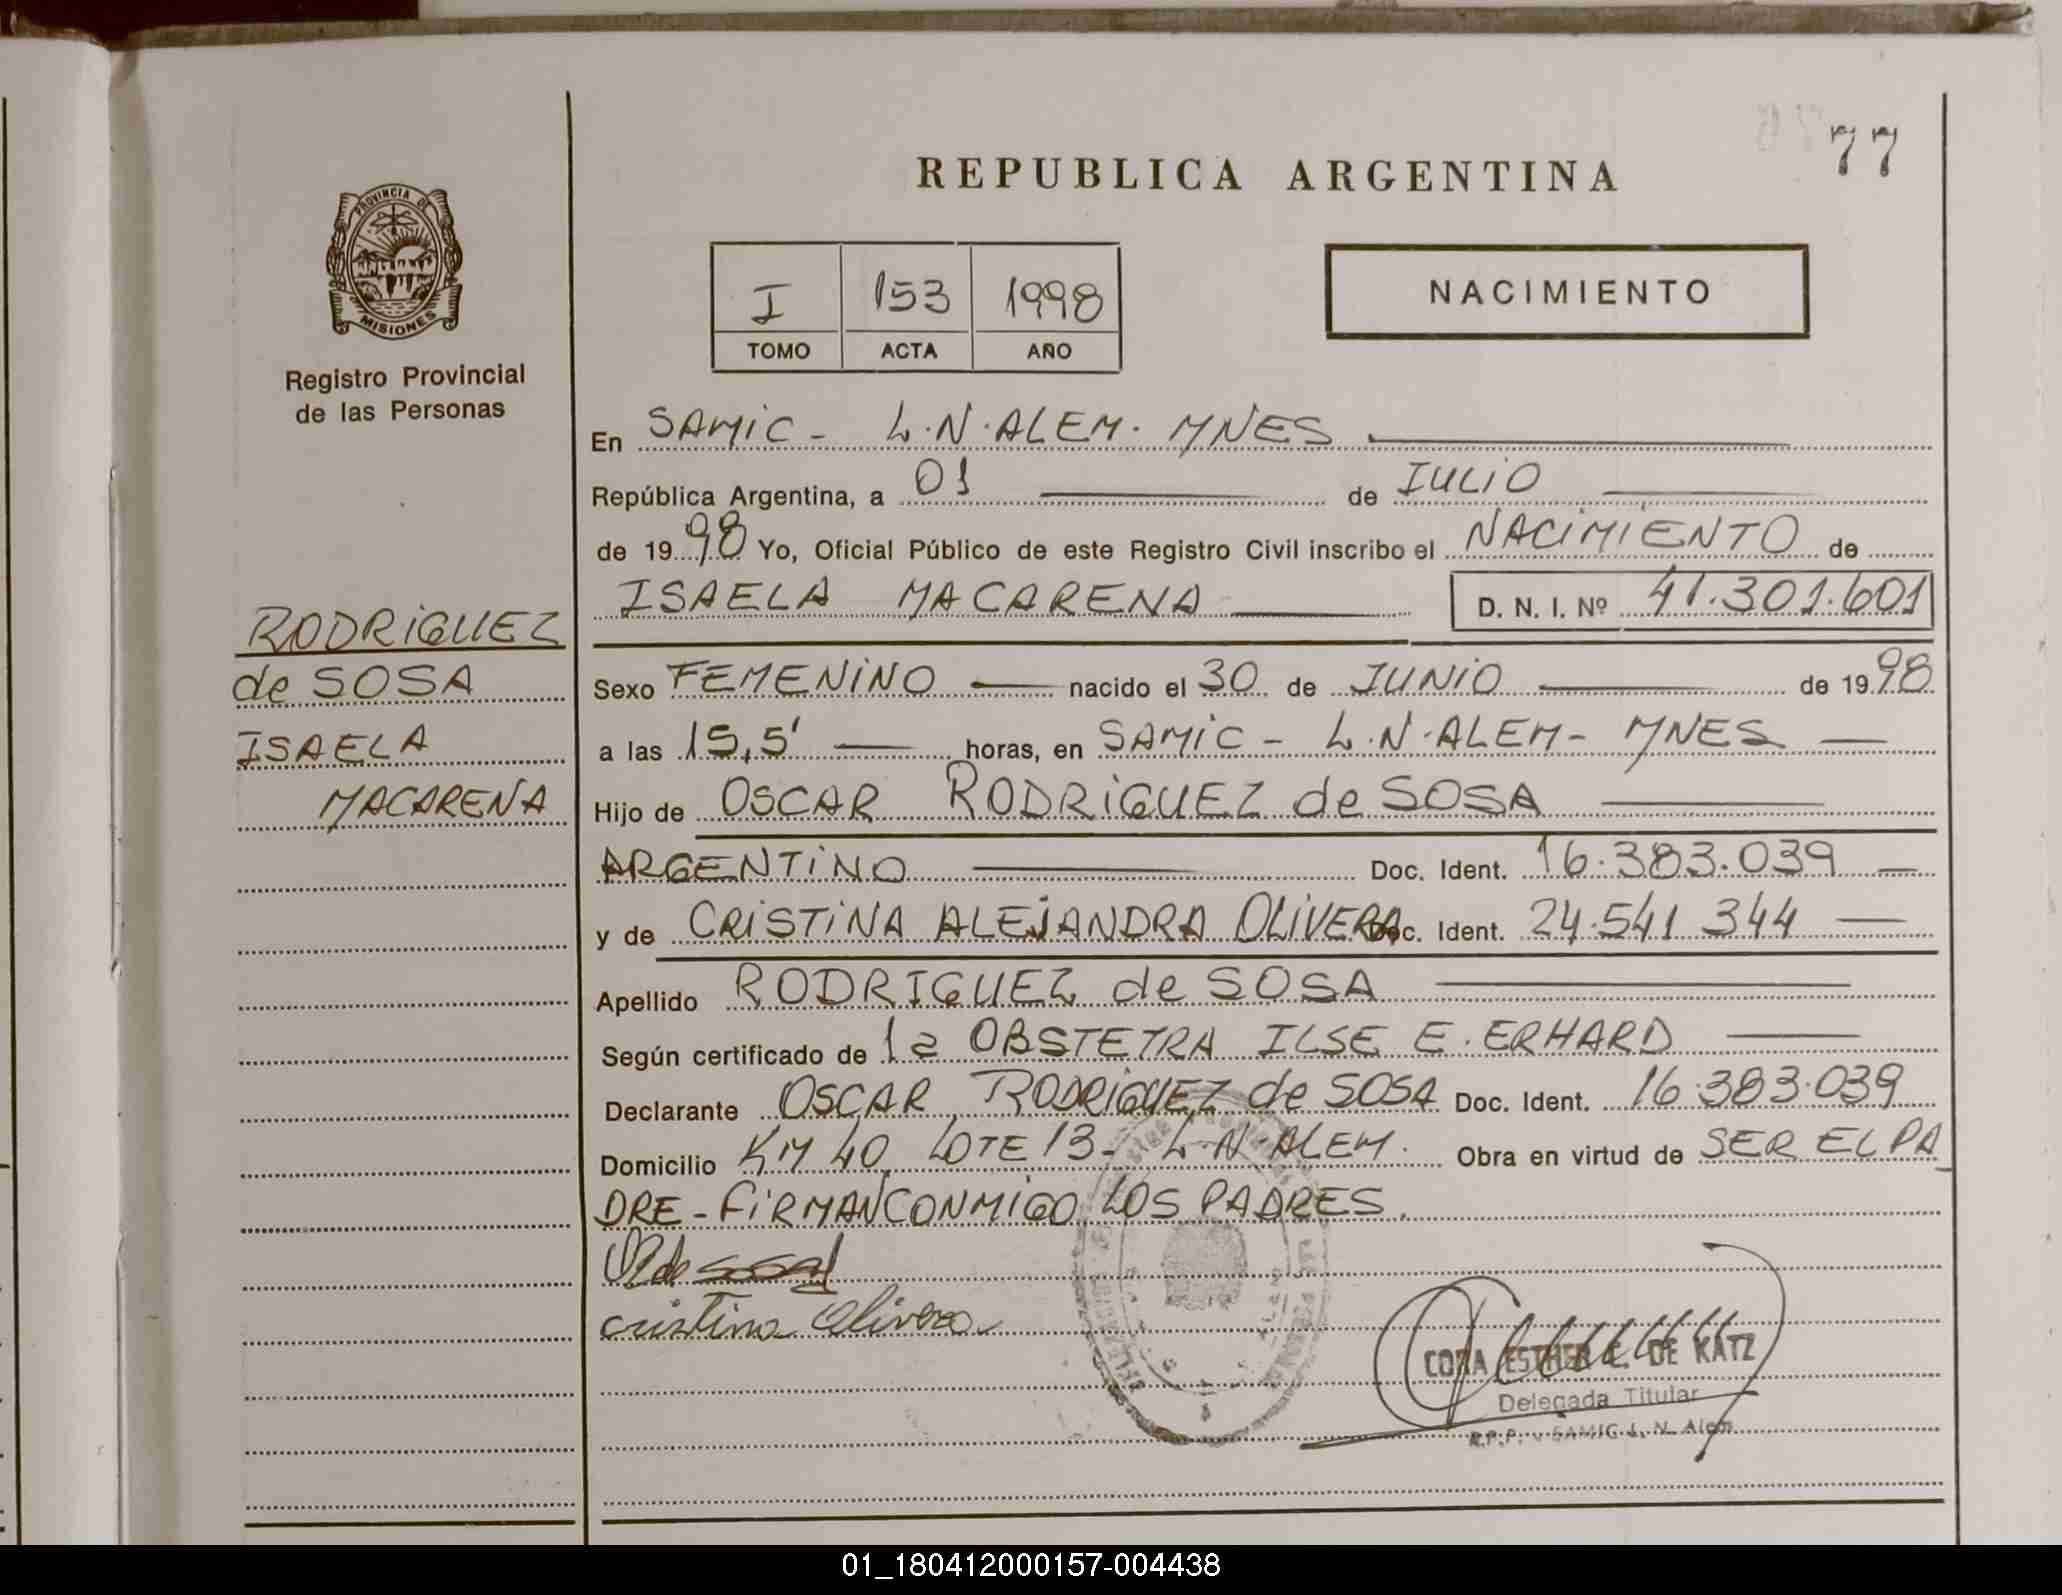 77
REPUBLICA ARGENTINA
PROVINCIA DE
MISIONES
I 153 1998
TOMO ACTA AÑO
NACIMIENTO
Registro Provincial
de las Personas
RODRIGUEZ
de SOSA
ISAELA
MACARENA
En SAMIC - L.N.ALEM. MNES
República Argentina, a 01 de IULIO
de 1998 Yo, Oficial Público de este Registro Civil inscribo el NACIMIENTO de
ISAELA MACARENA D. N. I. Nº 41.301.601
Sexo FEMENINO nacido el 30 de JUNIO de 1998
a las 15,5' horas, en SAMIC - L.N.ALEM- MNES
Hijo de OSCAR RODRIGUEZ de SOSA
ARGENTINO Doc. Ident. 16.383.039
y de CRISTINA ALEJANDRA OLIVERA Doc. Ident. 24.541 344
Apellido RODRIGUEZ de SOSA
Según certificado de la OBSTETRA ILSE E. ERHARD
Declarante OSCAR RODRIGUEZ de SOSA Doc. Ident. 16.383.039
Domicilio KM 40 LOTE 13- L.N.ALEM. Obra en virtud de SER EL PA
DRE - FIRMAN CONMIGO LOS PADRES.
de sosa
cristina Olivera
CORA ESTHER C. DE KATZ
Delegada Titular
R.P.P. - SAMIC L. N. Alem
01_180412000157-004438